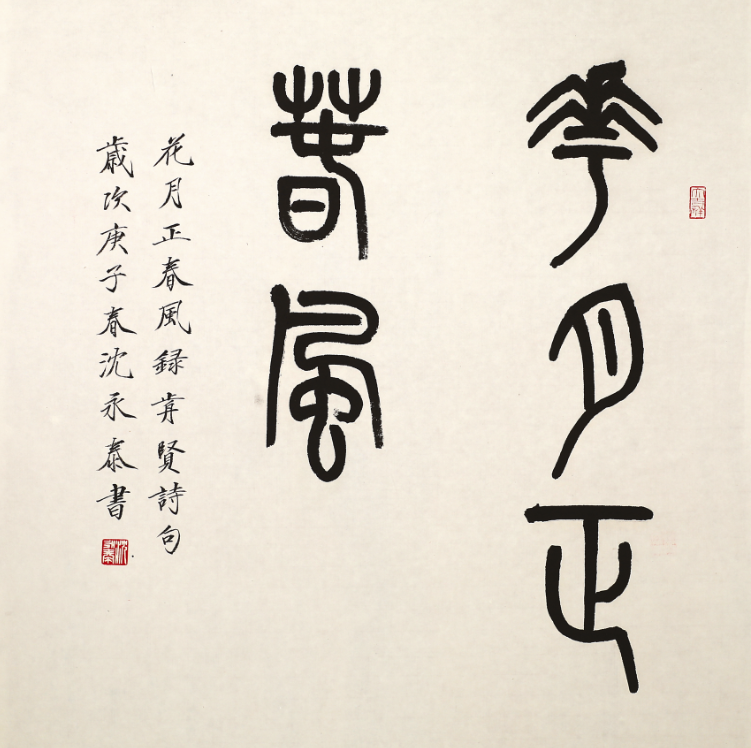 華月正
春風
花月正春風録前賢詩句
歲次庚子春沈永泰書